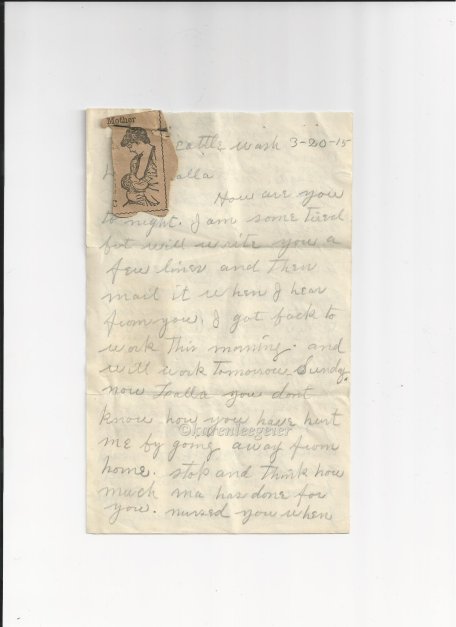 Mother
cattle wash 3-20-15
alla
How are you
to night. I am some tired
but will write you a
few lines and then
mail it when I hear
from you. I got back to
work this morning. and
will work tomorrow Sundy.
now Loalla you dont
know how you have hurt
©karenleegeier
me by going away from
home. stop and think how
much ma has done for
you. nursed you when